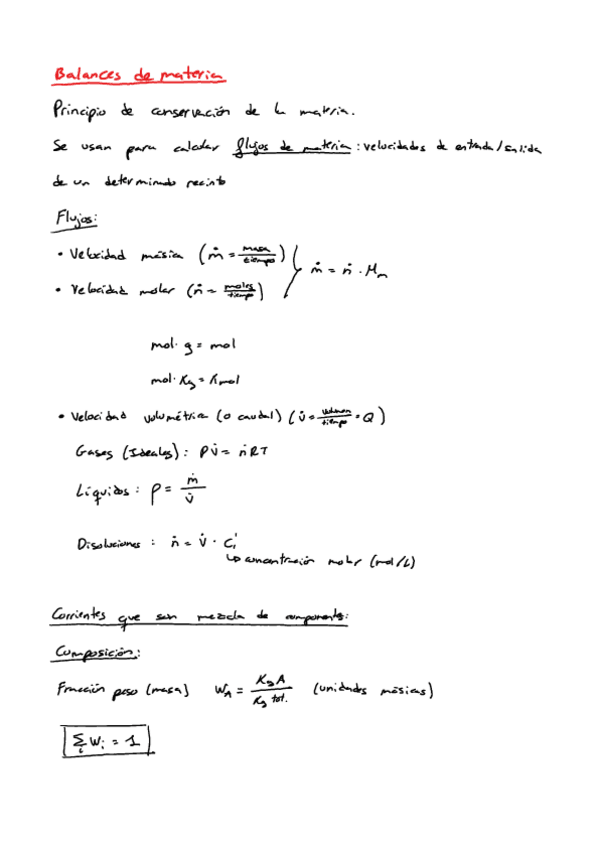 Balances de materia
Principio de conservación de la materia.
Se usan para calcular flujos de materia: velocidades de entrada/salida
de un determinado recinto
Flujos:
• Velocidad másica (ṁ = masa/tiempo)
• Velocidad molar (ṅ = moles/tiempo)
ṁ = ṅ · Mm
mol· g = mol
mol· Kg = Kmol
• Velocidad volumétrica (o caudal) (v̇ = volumen/tiempo = Q)
Gases (Ideales): PV̇ = ṅRT
Líquidos: ρ = ṁ/V̇
Disoluciones: ṅ = V̇ · Ci
↳ concentración molar (mol/L)
Corrientes que son mezcla de componentes:
Composición:
Fracción peso (masa) WA = Kg A/Kg tot. (unidades másicas)
∑i Wi = 1